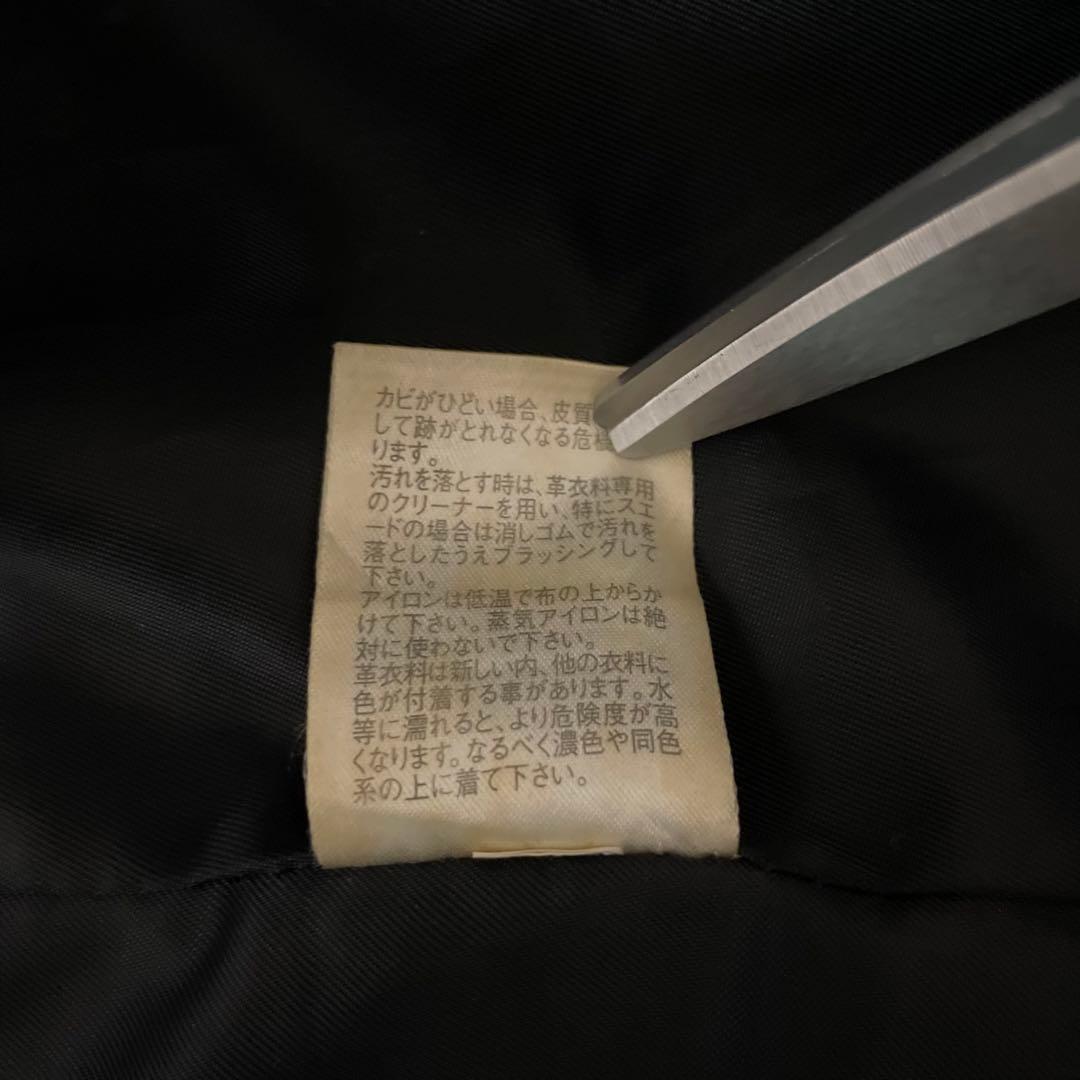 カビがひどい場合、皮質
して跡がとれなくなる危
ります。
汚れを落とす時は、革衣料専用
のクリーナーを用い、特にスエ
ードの場合は消しゴムで汚れを
落としたうえブラッシングして
下さい。
アイロンは低温で布の上からか
けて下さい。蒸気アイロンは絶
対に使わないで下さい。
革衣料は新しい内、他の衣料に
色が付着する事があります。水
等に濡れると、より危険度が高
くなります。なるべく濃色や同色
系の上に着て下さい。